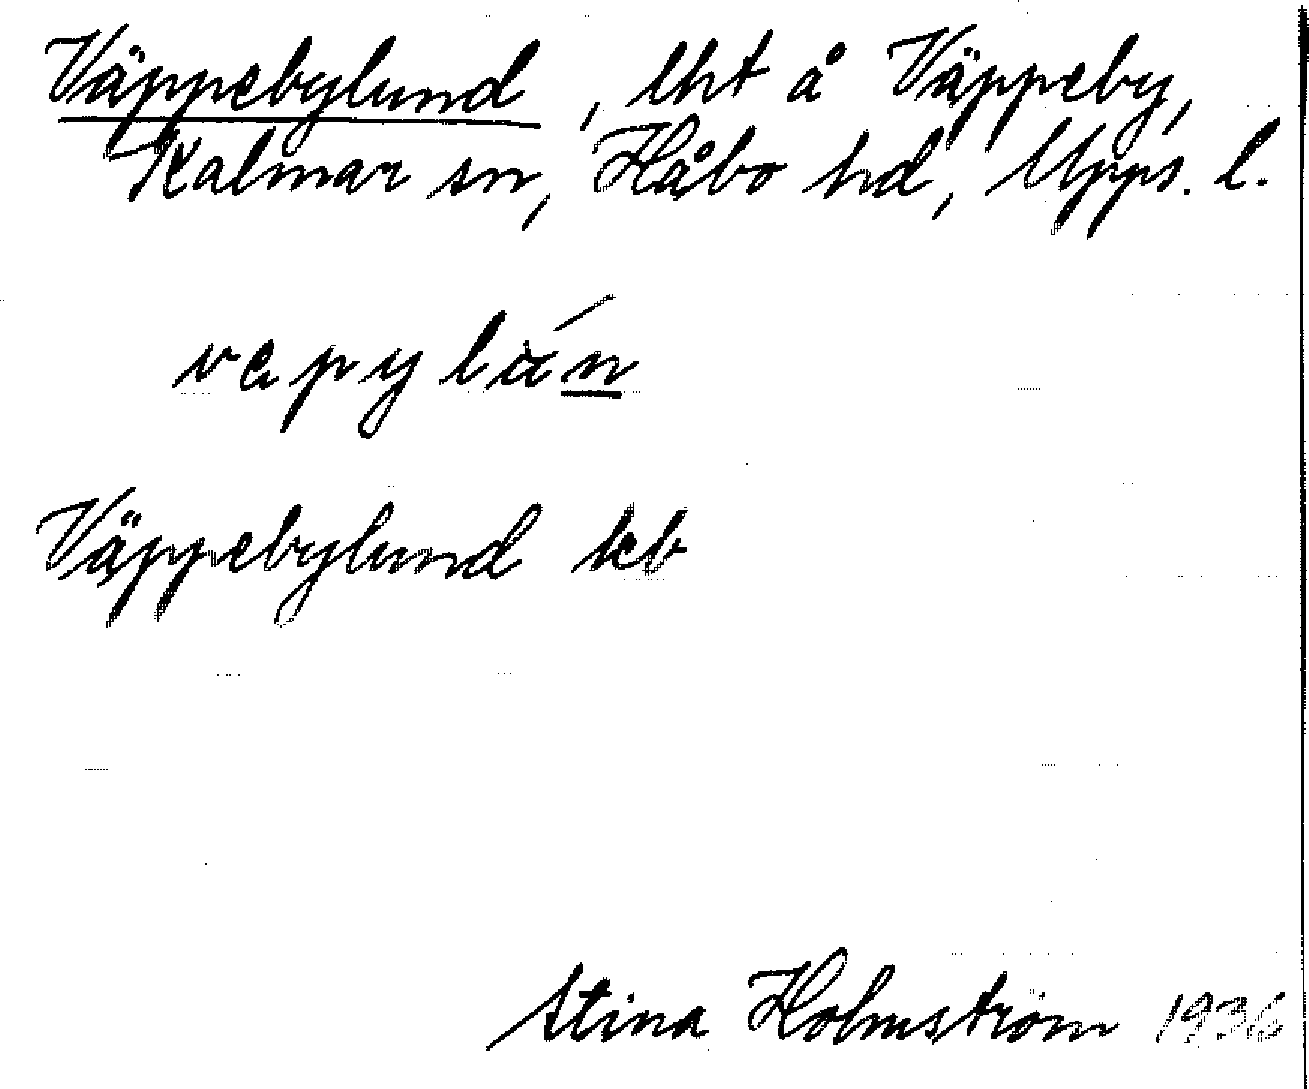 Väppebylund, lht å Väppeby,
Kalmar sn, Håbo hd, Upps. l.
Väppebylund keb
Stina Holmström 1936